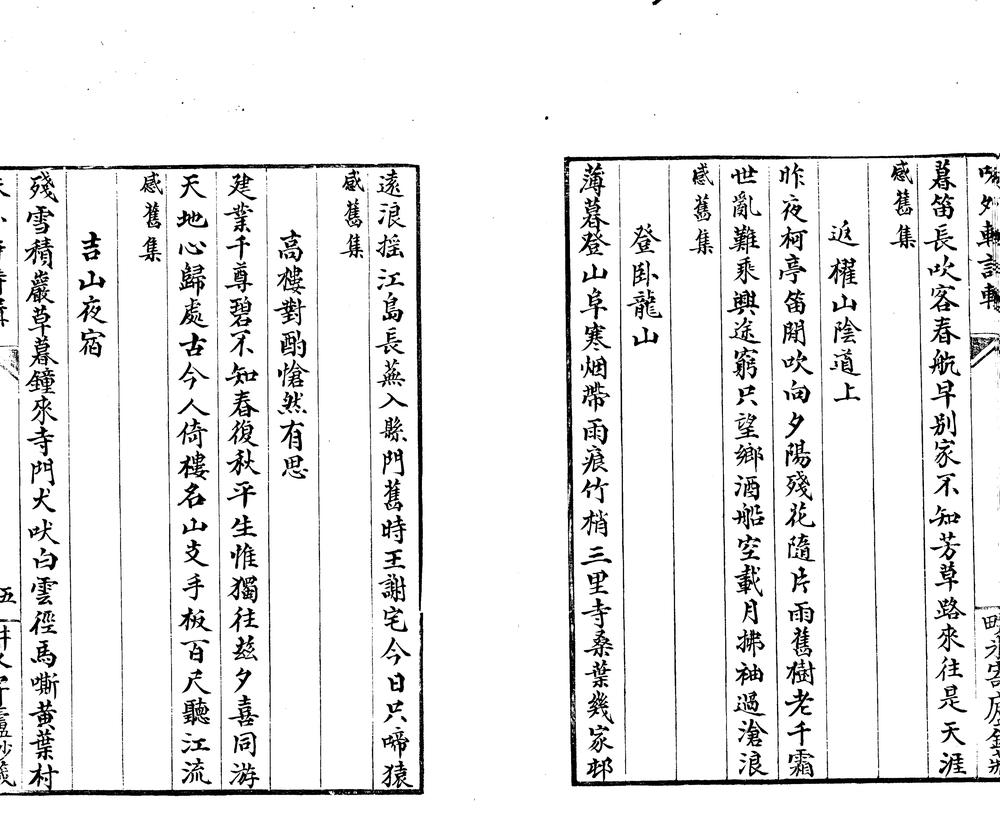 暮笛長吹客春航早別家不知芳草路來往是天涯
感舊集
返櫂山陰道上
昨夜柯亭笛閒吹向夕陽殘花隨片雨舊樹老千霜
世亂難乘興途窮只望鄉酒船空載月拂袖過滄浪
感舊集
登卧龍山
薄暮登山阜寒烟帶雨痕竹梢三里寺桑葉幾家邨
遠浪摇江島長蕪入縣門舊時王謝宅今日只啼猿
感舊集
高樓對酌愴然有思
建業千尊碧不知春復秋平生惟獨往兹夕喜同游
天地心歸處古今人倚樓名山支手板百尺聽江流
感舊集
吉山夜宿
殘雪積巖草暮鐘來寺門犬吠白雲徑馬嘶黃葉村
五